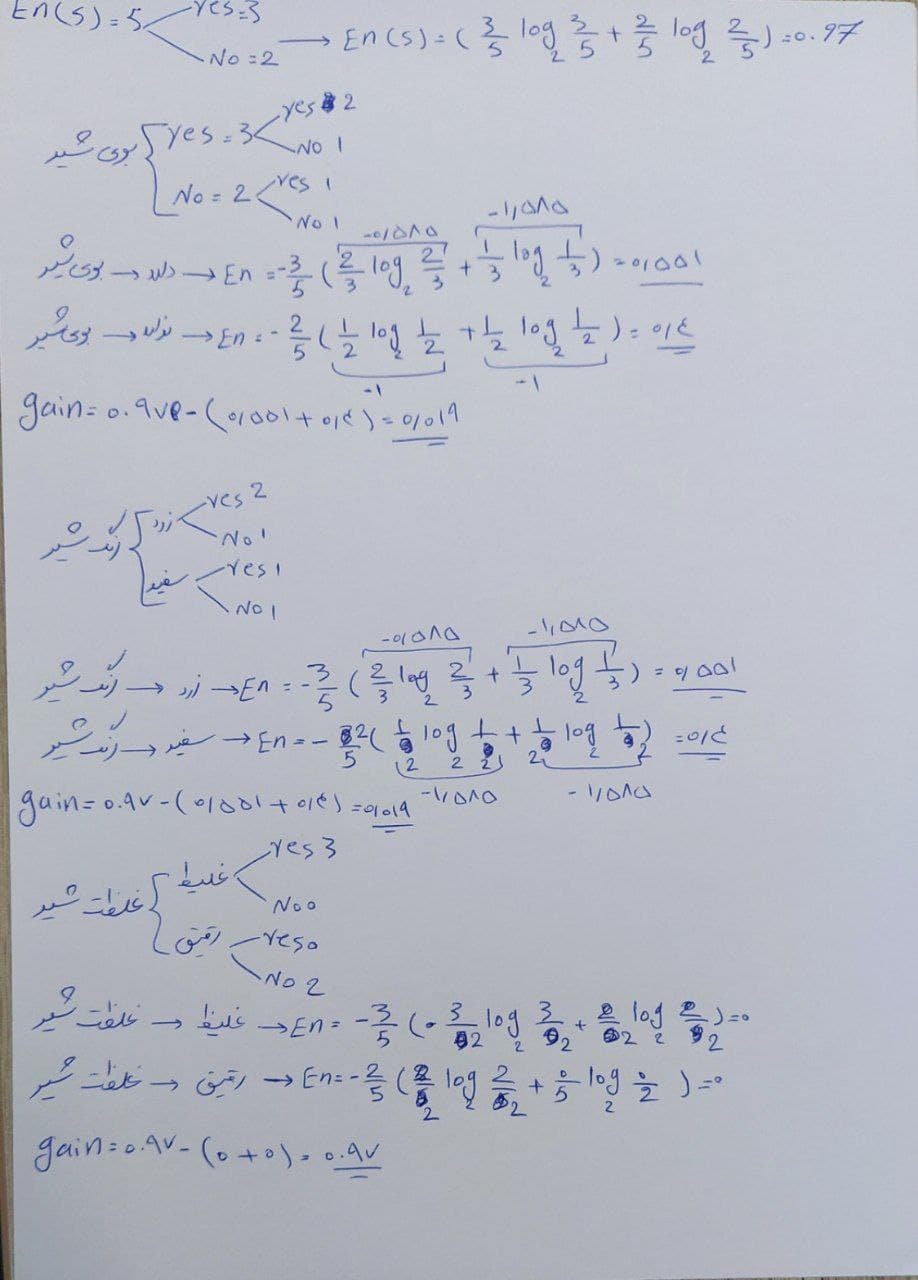 En(s)=5 yes=3
No=2 → En(s)=(3/5 log₂ 3/5 + 2/5 log₂ 2/5)=0.97
yes 2
بوی شیر { yes=3
No 1
No=2 yes 1
No 1
-۰٫۵۸۵ -۱٫۵۸۵
بوی شیر → دارد → En=-3/5 (2/3 log₂ 2/3 + 1/3 log₂ 1/3)=۰٫۵۵۱
بوی شیر → ندارد → En=-2/5 (1/2 log₂ 1/2 + 1/2 log₂ 1/2)=۰٫۴
-1 -1
gain=0.۹۷۰-(۰٫۵۵۱+۰٫۴)=۰٫۰۱۹
yes 2
رنگ شیر { زرد
No 1
سفید yes 1
No 1
-۰٫۵۸۵ -۱٫۵۸۵
رنگ شیر → زرد → En=-3/5 (2/3 log₂ 2/3 + 1/3 log₂ 1/3)=۰٫۵۵۱
رنگ شیر → سفید → En=-2/5 (1/2 log₂ 1/2 + 1/2 log₂ 1/2)=۰٫۴
-۱٫۵۸۵ -۱٫۵۸۵
gain=0.۹۷-(۰٫۵۵۱+۰٫۴)=۰٫۰۱۹
yes 3
غلظت شیر { غلیظ
No 0
رقیق yes 0
No 2
غلظت شیر → غلیظ → En=-3/5 (3/2 log₂ 3/2 + 2/2 log₂ 2/2)=۰
غلظت شیر → رقیق → En=-2/5 (2/2 log₂ 2/2 + ۰/5 log₂ ۰/2)=۰
gain=0.۹۷-(0+0)=0.۹۷